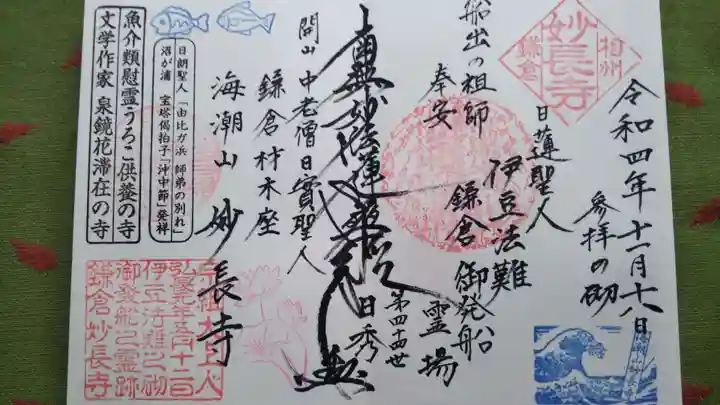 令和四年十一月十八日
参拝の砌
相州
妙長寺
鎌倉
日蓮聖人
伊豆法難
鎌倉御発船
霊場
船出の祖師
奉安
南無妙法蓮華経
第四十四世
日秀
開山 中老僧日實聖人
鎌倉材木座
海潮山 妙長寺
日朗聖人「由比ガ浜 師弟の別れ」
沼が浦 宝塔偈拍子「沖中節」発祥
魚介類慰霊うろこ供養の寺
文学作家 泉鏡花滞在の寺
弘長元年五月十二日
伊豆法難之砌
御発船之霊跡
鎌倉妙長寺